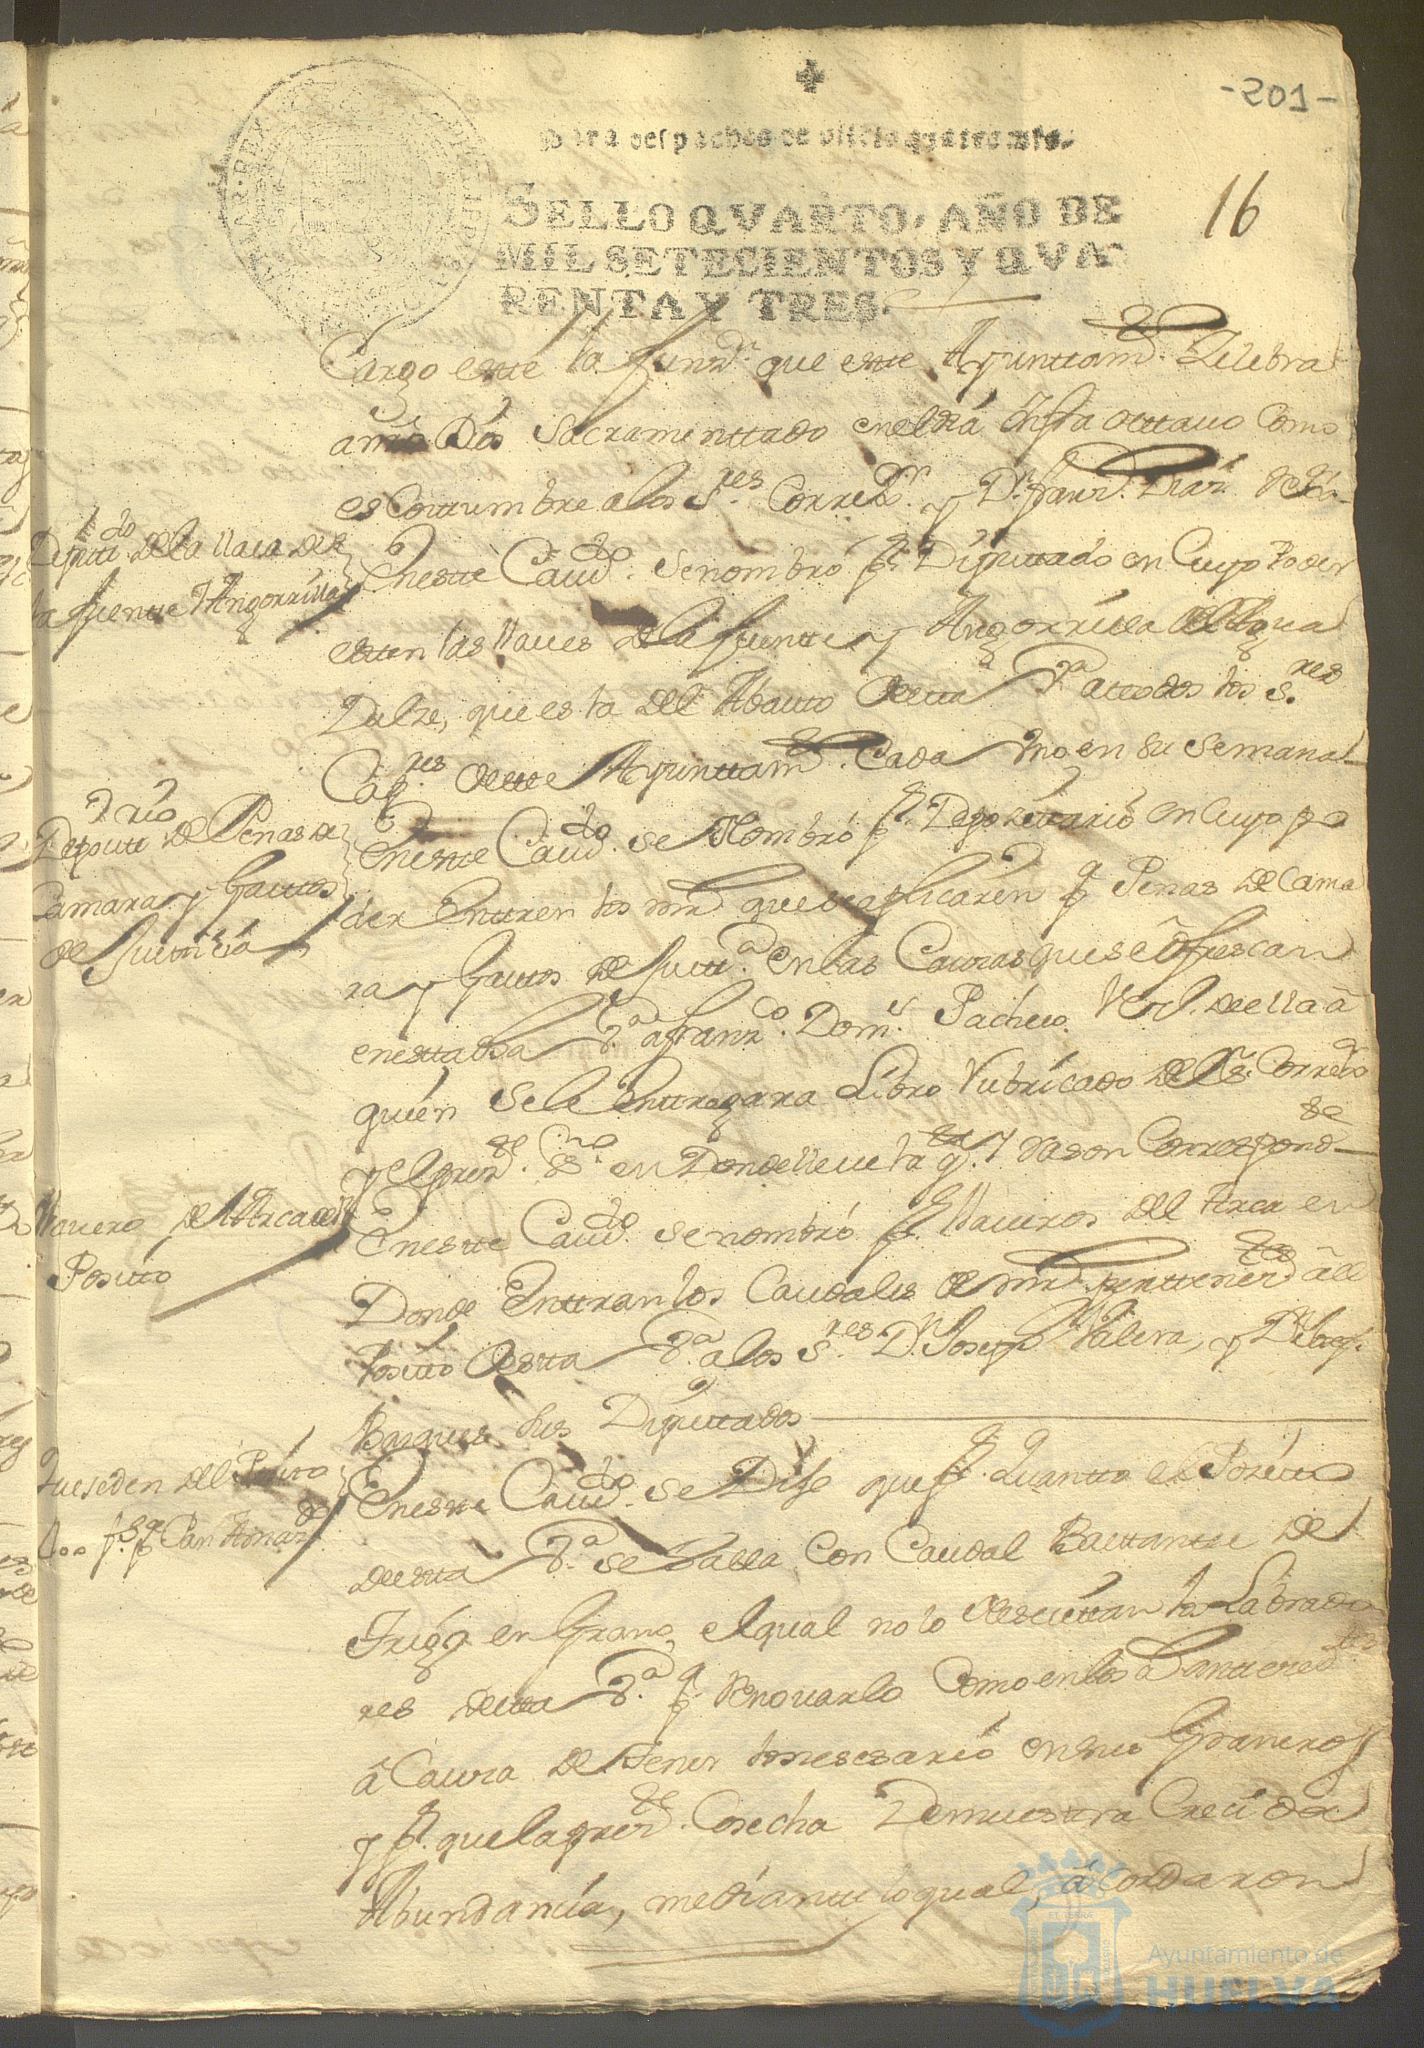 -201-
Para despachos de oficio quatro mrs.
SELLO QVARTO, AÑO DE
MIL SETECIENTOS Y QVA-
RENTA Y TRES.
16
Cargo este la funzn. que este Ayunttamto. Zelebra
a mo. Dios Sacramenttado en el dia infra octtauo como
es Costtumbre a los Sres. Correxr. y Dn. Franco. Diaz
Diputtdo. de la llaue de
la fuentte y Angorrilla
En estte Cauddo. se nombró pr. Diputtado en Cuyo Poder
esten las llaues de la fuentte y Angorrilla del Agua
Dulze, que es la del Abasto destta Va. a ttodos los Sres.
Capres. deste Ayunttamto. Cada Vno en su Semana
Deposittrio. de Penas de
Camara y Gasttos
de Justtizia
En estte Cauddo. se Nombró pr. Deposittario en Cuyo po
der Enttren los mrs. que se aplicaren pr. Penas de Cama
ra y Gasttos de Justta. en las Causas que se ofrescan
en estta dha Va. a Franco. Domz. Pacheco Vezo. de ella â
quien se le enttregara Libro Rubricado del Sr. Corregor
y el press. Sno. en Donde lleue la qta. y rason Correspondte
Llauero del Arca del
Positto
En estte Cauddo. se nombró pr. llaueros del Arca en
Donde Enttran los Caudales de mrs. perttenezdos âl
Positto destta Va. a los Sres. Dn. Joseph Valera, y Dn. Diego
Basques sus Diputtados
Que se den del Positto
pa. Panamar
En estte Cauddo. se Dijo que pr. Quantto el Positto
destta Va. se Halla con Caudal Basttantte de
Trigo en Grano, el qual no lo nesesittan los Labrado
res destta Va. pa. Renouarlo Como en los a anttezedtes
â Causa de tener lo nesesario en sus Graneros
y pr. que la preste. Cosecha Demuestra Crecida
Abundanzia, mediantte lo qual, acordaron
Ayuntamiento de
HUELVA